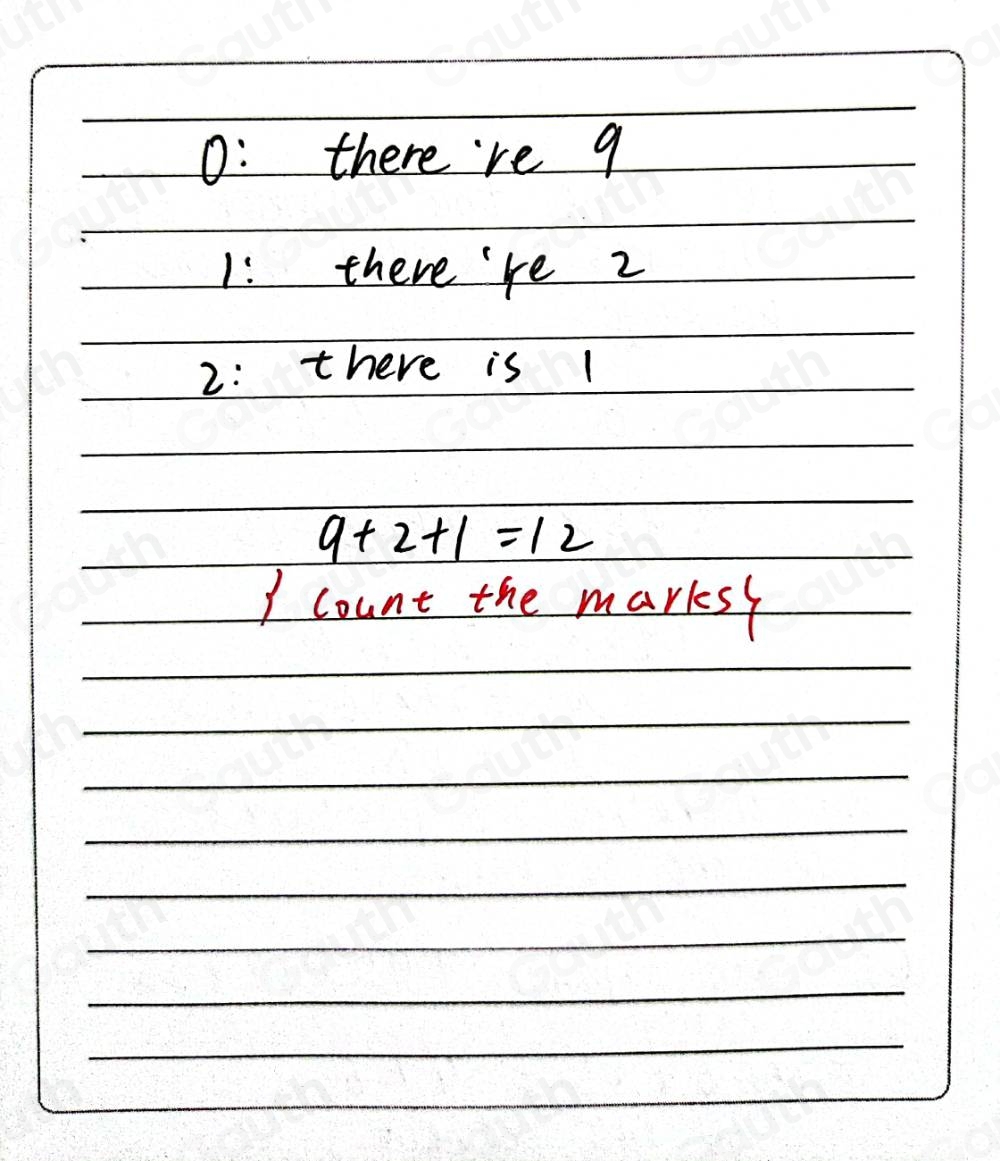 0: there 're 9
1: there 're 2
2: there is 1
9+2+1=12
{ count the marks}